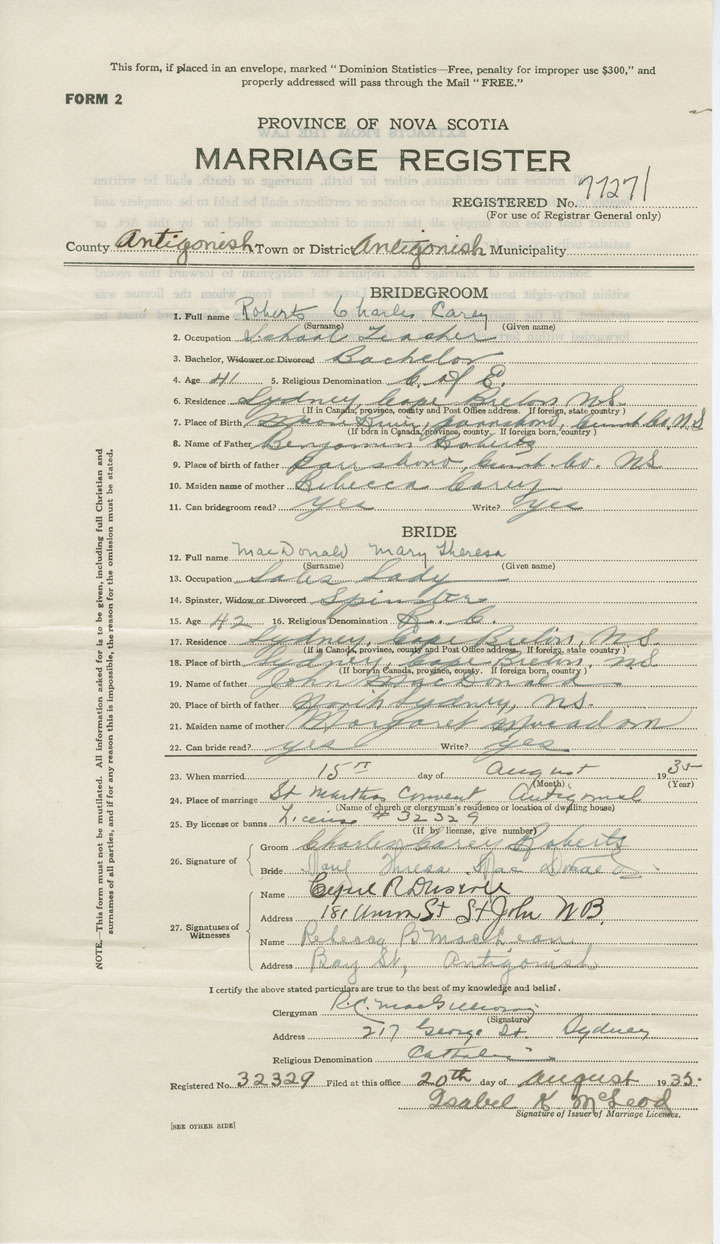 This form, if placed in an envelope, marked "Dominion Statistics—Free, penalty for improper use $300," and
properly addressed will pass through the Mail "FREE."
FORM 2
PROVINCE OF NOVA SCOTIA
MARRIAGE REGISTER
REGISTERED No. 77271
(For use of Registrar General only)
County Antigonish Town or District Antigonish Municipality
BRIDEGROOM
1. Full name Roberts Charles Carey
(Surname) (Given name)
2. Occupation School Teacher
3. Bachelor, Widower or Divorced Bachelor
4. Age 41 5. Religious Denomination C. of E.
6. Residence Sydney, Cape Breton N.S.
(If in Canada, province, county and Post Office address. If foreign, state country)
7. Place of Birth River, Parrsboro, Cumb. Co. N.S
(If born in Canada, province, county. If foreign born, country)
8. Name of Father Benjamin Roberts
9. Place of birth of father Parrsboro, Cumb. Co. NS
10. Maiden name of mother Rebecca Carey
11. Can bridegroom read? yes Write? yes
BRIDE
12. Full name MacDonald Mary Theresa
(Surname) (Given name)
13. Occupation Sales Lady
14. Spinster, Widow or Divorced Spinster
15. Age 42 16. Religious Denomination R. C.
17. Residence Sydney, Cape Breton, N.S.
(If in Canada, province, county and Post Office address. If foreign, state country)
18. Place of birth Sydney, Cape Breton, N.S
(If born in Canada, province, county. If foreign born, country)
19. Name of father John MacDonald
20. Place of birth of father North Sydney, N.S.
21. Maiden name of mother Margaret
22. Can bride read? yes Write? yes
23. When married 15th day of August 1935
(Month) (Year)
24. Place of marriage St Marthas Convent, Antigonish
(Name of church or clergyman's residence or location of dwelling house)
25. By license or banns License # 32329
(If by license, give number)
26. Signature of
Groom Charles Carey Roberts
Bride Mary Theresa MacDonald
27. Signatures of Witnesses
Name R Driscoll
Address 181 Union St St John N B.
Name Rebecca B MacLean
Address Bay St, Antigonish
I certify the above stated particulars are true to the best of my knowledge and belief.
Clergyman R.C. MacGillivray
(Signature)
Address 217 George St. Sydney
Religious Denomination Catholic
Registered No. 32329 Filed at this office 20th day of August 1935.
Isabel K McLeod
Signature of Issuer of Marriage Licenses.
[SEE OTHER SIDE]
NOTE.—This form must not be mutilated. All information asked for is to be given, including full Christian and
surnames of all parties, and if for any reason this is impossible, the reason for the omission must be stated.